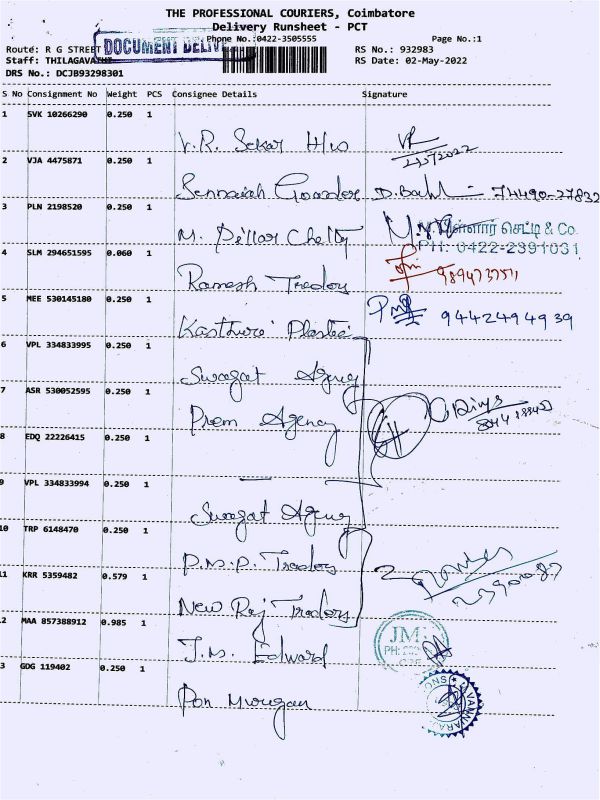 THE PROFESSIONAL COURIERS, Coimbatore
Delivery Runsheet - PCT
Phone No.:0422-3505555 Page No.:1
Route: R G STREET DOCUMENT DELIV RS No.: 932983
Staff: THILAGAVATHI RS Date: 02-May-2022
DRS No.: DCJB93298301
S No Consignment No Weight PCS Consignee Details Signature
1 SVK 10266290 0.250 1
V.R. Sekar H/w
2 VJA 4475871 0.250 1
Sennaiah Goundor 74490-27832
3 PLN 2198520 0.250 1
M. Pillar Chetty செட்டி & Co.
PH: 0422-2391031
4 SLM 294651595 0.060 1
Ramesh Tradors
5 MEE 530145180 0.250 1
Kasthuri Plastic 9442494939
6 VPL 334833995 0.250 1
Swagat Agency
7 ASR 530052595 0.250 1
Prem Agency
8 EDQ 22226415 0.250 1
9 VPL 334833994 0.250 1
Swagat Agency
10 TRP 6148470 0.250 1
P.M.P. Tradors
11 KRR 5359482 0.579 1
New Raj Tradors
12 MAA 857388912 0.985 1
J.M. Edward JM
PH:
13 GDG 119402 0.250 1
Pon Murugan